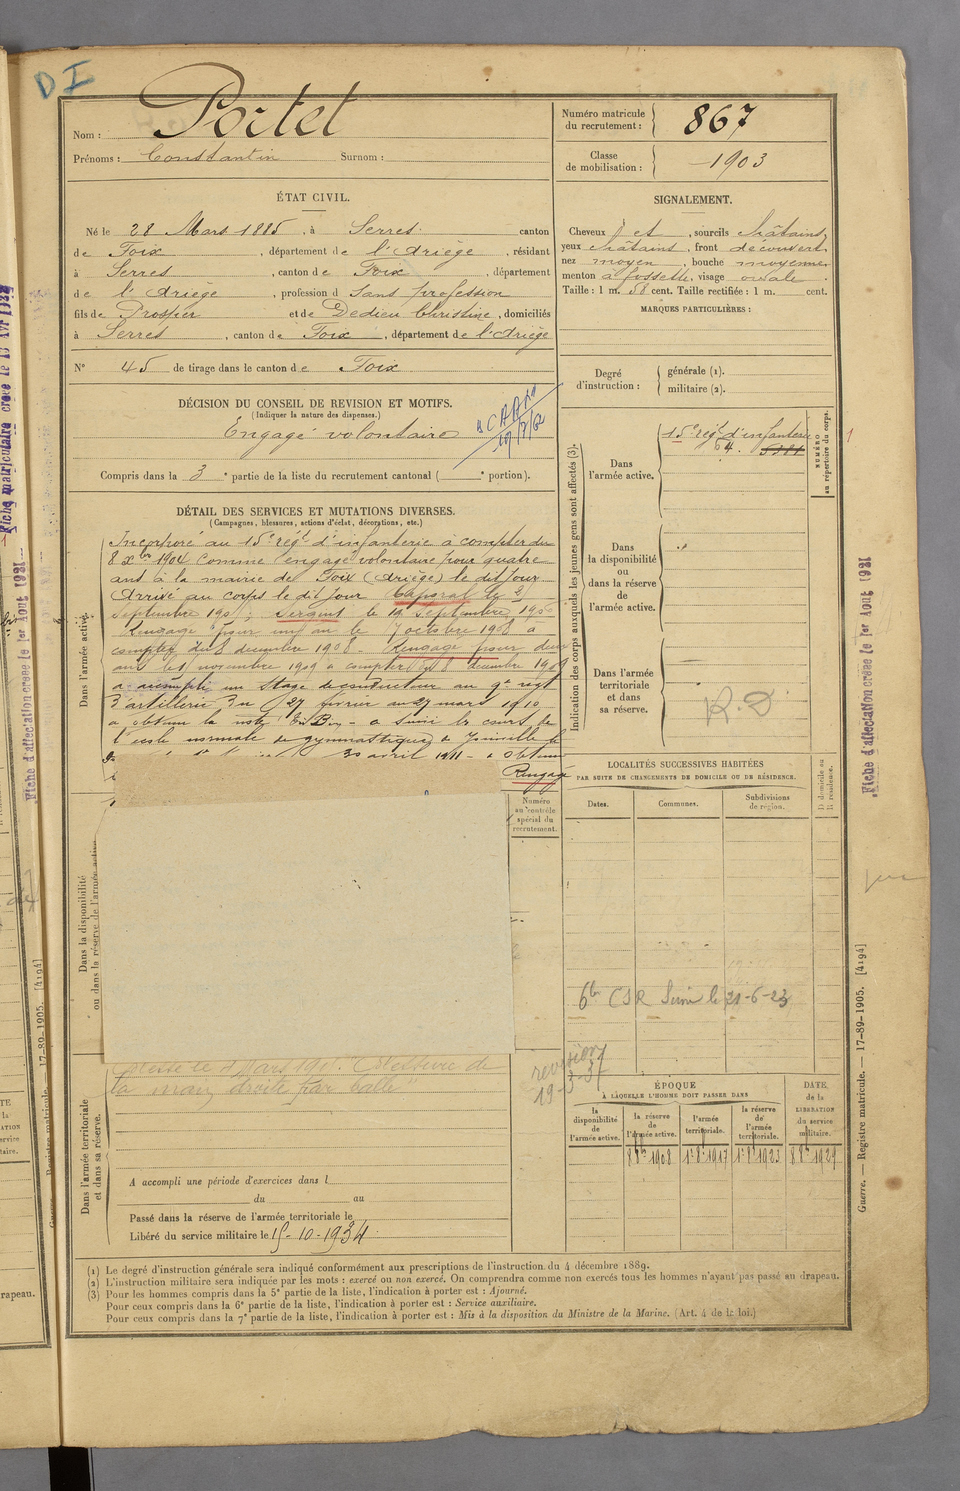 D I
Nom : Portet
Prénoms : Constantin Surnom :
Numéro matricule du recrutement : 867
Classe de mobilisation : 1903
ÉTAT CIVIL.
Né le 28 Mars 1885, à Serres canton
de Foix, département de l'Ariège, résidant
à Serres, canton de Foix, département
de l'Ariège, profession d Sans profession
fils de Prosper et de Dedieu Christine, domiciliés
à Serres, canton de Foix, département de l'Ariège
N° 45 de tirage dans le canton de Foix
DÉCISION DU CONSEIL DE REVISION ET MOTIFS.
(Indiquer la nature des dispenses.)
Engagé volontaire
Compris dans la 3e partie de la liste du recrutement cantonal ( e portion).
DÉTAIL DES SERVICES ET MUTATIONS DIVERSES.
(Campagnes, blessures, actions d'éclat, décorations, etc.)
Dans l'armée active.
Incorporé au 15e regt d'infanterie à compter du
8 xbre 1904 comme engagé volontaire pour quatre
ans à la mairie de Foix (Ariège) le dit jour
Arrivé au corps le dit jour Caporal le
Septembre Sergent le 19 Septembre
Rengagé pour un an le 7 octobre 1908 à
compter du 8 decembre 1908. Rengagé pour deux
ans le novembre 1909 a compter du 8 decembre 1909
a accompli un stage de conducteur au 9e regt
d'artillerie du 27 fevrier au 27 mars 1910
a obtenu la note Bien a suivi les cours de
l'ecole normale de gymnastique de Joinville le
30 avril 1911 a obtenu
Rengagé
Dans la disponibilité ou dans la réserve de l'armée active
Numéro au contrôle spécial du recrutement.
Dans l'armée territoriale et dans sa réserve.
Blessé le Mars
la main droite par balle"
A accompli une période d'exercices dans l
du au
Passé dans la réserve de l'armée territoriale le
Libéré du service militaire le 15-10-1934
SIGNALEMENT.
Cheveux et, sourcils châtains
yeux châtains, front découvert
nez moyen, bouche moyenne
menton à fossette, visage ovale
Taille : 1 m. 58 cent. Taille rectifiée : 1 m. cent.
MARQUES PARTICULIÈRES :
Degré d'instruction : générale (1).
militaire (2).
Indication des corps auxquels les jeunes gens sont affectés (3).
NUMÉRO au répertoire du corps.
Dans l'armée active.
15e regt d'infanterie
Dans la disponibilité ou dans la réserve de l'armée active.
Dans l'armée territoriale et dans sa réserve.
R.D
LOCALITÉS SUCCESSIVES HABITÉES
PAR SUITE DE CHANGEMENTS DE DOMICILE OU DE RÉSIDENCE.
Dates. Communes. Subdivisions de région.
D. domicile ou R. résidence.
CSR le 21-6-23
revision
19-3-37
ÉPOQUE
À LAQUELLE L'HOMME DOIT PASSER DANS
la disponibilité de l'armée active.
la réserve de l'armée active.
l'armée territoriale.
la réserve de l'armée territoriale.
DATE de la LIBÉRATION du service militaire.
8 8bre 1908 1er 8bre 1917 1er 8bre 1923 8 8bre 1929
(1) Le degré d'instruction générale sera indiqué conformément aux prescriptions de l'instruction du 4 décembre 1889.
(2) L'instruction militaire sera indiquée par les mots : exercé ou non exercé. On comprendra comme non exercés tous les hommes n'ayant pas passé au drapeau.
(3) Pour les hommes compris dans la 5e partie de la liste, l'indication à porter est : Ajourné.
Pour ceux compris dans la 6e partie de la liste, l'indication à porter est : Service auxiliaire.
Pour ceux compris dans la 7e partie de la liste, l'indication à porter est : Mis à la disposition du Ministre de la Marine. (Art. 4 de la loi.)
Fiche d'affectation créée le 1er Aout 1931
Guerre. — Registre matricule. — 17-89-1905. [4194]
Fiche matriculaire créée le
Fiche d'affectation créée le 1er Aout 1931
Registre matricule. — 17-89-1905. [4194]
drapeau.